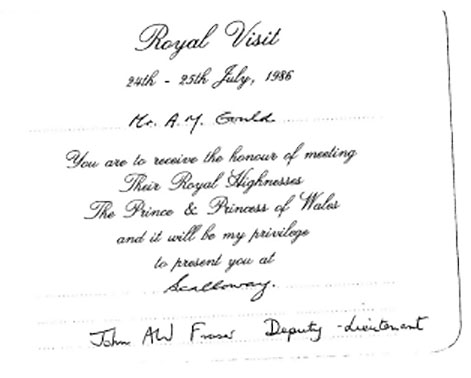 Royal Visit
24th - 25th July, 1986
Mr. A.M. Gould
You are to receive the honour of meeting
Their Royal Highnesses
The Prince & Princess of Wales
and it will be my privilege
to present you at
Scalloway.
John AW Fraser Deputy-Lieutenant